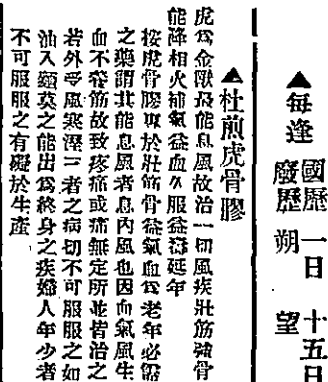 ▲每逢
國歷一日 十五日
廢歷 朔 望
▲杜煎虎骨膠
虎爲金獸最能息風故治一切風疾壯筋強骨
能降相火補氣益血久服益壽延年
按虎骨膠專於壯筋骨益氣血爲老年必需
之藥謂其能息風者息內風也因血氣風生
血不養筋故致疼痛或痛無定所並皆治之
若外受風寒濕三者之病切不可服服之如
油入麵莫之能出爲終身之疾婦人年少者
不可服服之有礙於生產